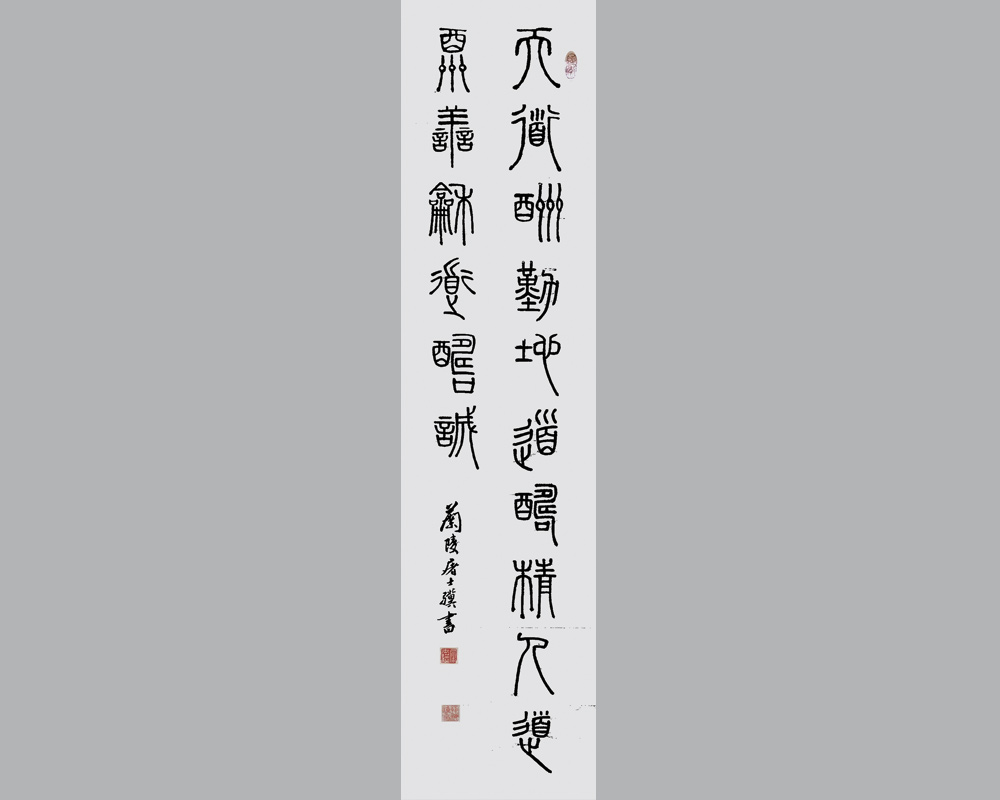 天道酬勤地道酬精人道
酬善龢道酬誠
蘭陵居士驥書